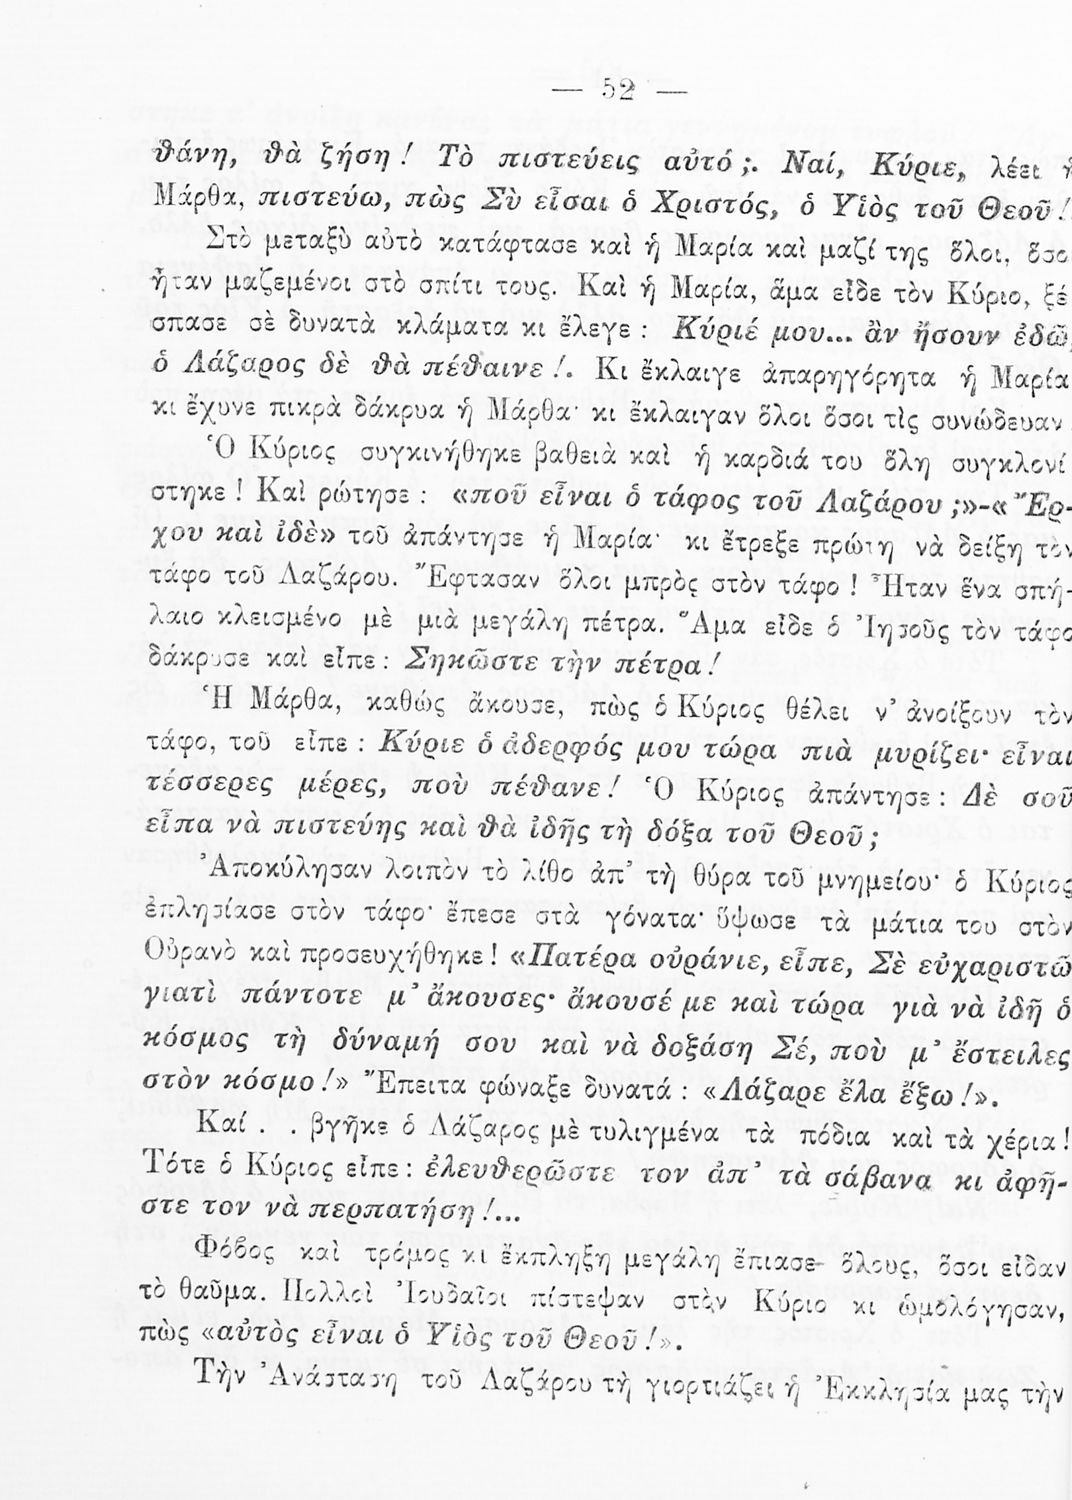 — 52 —
θάνη, θὰ ζήση! Τὸ πιστεύεις αὐτό;. Ναί, Κύριε, λέει ἡ
Μάρθα, πιστεύω, πὼς Σὺ εἶσαι ὁ Χριστός, ὁ Υἱὸς τοῦ Θεοῦ!.
Στὸ μεταξὺ αὐτὸ κατάφτασε καὶ ἡ Μαρία καὶ μαζί της ὅλοι, ὅσο
ἦταν μαζεμένοι στὸ σπίτι τους. Καὶ ἡ Μαρία, ἅμα εἶδε τὸν Κύριο, ξέ
σπασε σὲ δυνατὰ κλάματα κι ἔλεγε : Κύριέ μου... ἂν ἤσουν ἐδῶ,
ὁ Λάζαρος δὲ θὰ πέθαινε!. Κι ἔκλαιγε ἀπαρηγόρητα ἡ Μαρία
κι ἔχυνε πικρὰ δάκρυα ἡ Μάρθα· κι ἔκλαιγαν ὅλοι ὅσοι τὶς συνώδευαν
Ὁ Κύριος συγκινήθηκε βαθειὰ καὶ ἡ καρδιά του ὅλη συγκλονί
στηκε! Καὶ ρώτησε : «ποῦ εἶναι ὁ τάφος τοῦ Λαζάρου;»-«Ἔρ-
χου καὶ ἰδὲ» τοῦ ἀπάντησε ἡ Μαρία· κι ἔτρεξε πρώτη νὰ δείξη τὸν
τάφο τοῦ Λαζάρου. Ἔφτασαν ὅλοι μπρὸς στὸν τάφο! Ἦταν ἕνα σπή-
λαιο κλεισμένο μὲ μιὰ μεγάλη πέτρα. Ἅμα εἶδε ὁ Ἰησοῦς τὸν τάφο
δάκρυσε καὶ εἶπε : Σηκῶστε τὴν πέτρα!
Ἡ Μάρθα, καθώς ἄκουσε, πὼς ὁ Κύριος θέλει ν' ἀνοίξουν τὸν
τάφο, τοῦ εἶπε : Κύριε ὁ ἀδερφός μου τώρα πιὰ μυρίζει· εἶναι
τέσσερες μέρες, ποὺ πέθανε! Ὁ Κύριος ἀπάντησε : Δὲ σοῦ
εἶπα νὰ πιστεύης καὶ θὰ ἰδῆς τὴ δόξα τοῦ Θεοῦ;
Ἀποκύλησαν λοιπὸν τὸ λίθο ἀπ' τὴ θύρα τοῦ μνημείου· ὁ Κύριος
ἐπλησίασε στὸν τάφο· ἔπεσε στὰ γόνατα· ὕψωσε τὰ μάτια του στὸν
Οὐρανὸ καὶ προσευχήθηκε! «Πατέρα οὐράνιε, εἶπε, Σὲ εὐχαριστῶ
γιατὶ πάντοτε μ' ἄκουσες· ἄκουσέ με καὶ τώρα γιὰ νὰ ἰδῆ ὁ
κόσμος τὴ δύναμή σου καὶ νὰ δοξάση Σέ, ποὺ μ' ἔστειλες
στὸν κόσμο!» Ἔπειτα φώναξε δυνατά : «Λάζαρε ἔλα ἔξω!».
Καί . . βγῆκε ὁ Λάζαρος μὲ τυλιγμένα τὰ πόδια καὶ τὰ χέρια!
Τότε ὁ Κύριος εἶπε : ἐλευθερῶστε τον ἀπ' τὰ σάβανα κι ἀφῆ-
στε τον νὰ περπατήση!...
Φόβος καὶ τρόμος κι ἔκπληξη μεγάλη ἔπιασε ὅλους, ὅσοι εἶδαν
τὸ θαῦμα. Πολλοὶ Ἰουδαῖοι πίστεψαν στὸν Κύριο κι ὡμολόγησαν,
πὼς «αὐτὸς εἶναι ὁ Υἱὸς τοῦ Θεοῦ!».
Τὴν Ἀνάσταση τοῦ Λαζάρου τὴ γιορτιάζει ἡ Ἐκκλησία μας τὴν